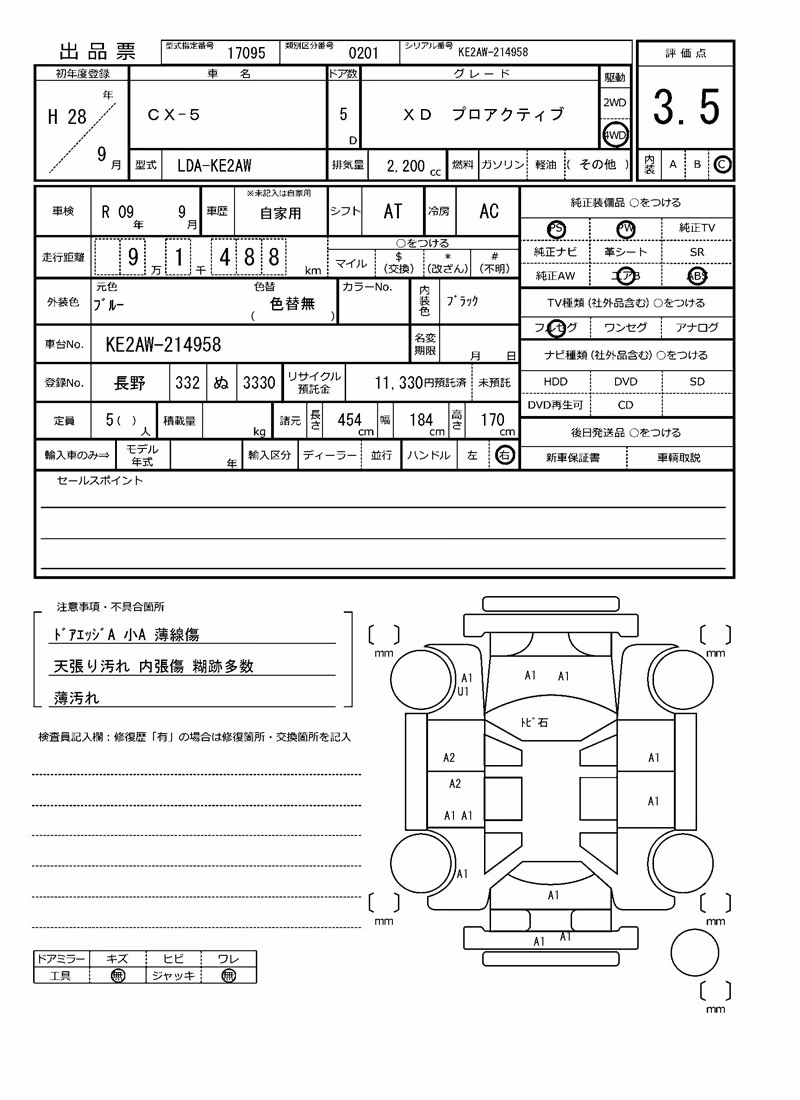 出品票 型式指定番号 17095 類別区分番号 0201 シリアル番号 KE2AW-214958
評価点
3.5
内装 A B C
初年度登録 車名 ドア数 グレード 駆動
H 28 年 9 月 CX-5 5 D XD プロアクティブ 2WD 4WD
型式 LDA-KE2AW 排気量 2,200 cc 燃料 ガソリン 軽油 ( その他 )
車検 R 09 年 9 月 車歴 ※未記入は自家用 自家用 シフト AT 冷房 AC
走行距離 9 万 1 千 4 8 8 km ○をつける
マイル $ (交換) * (改ざん) # (不明)
外装色 元色 ブルー 色替 ( 色替無 ) カラーNo. 内装色 ブラック
車台No. KE2AW-214958 名変期限 月 日
登録No. 長野 332 ぬ 3330 リサイクル預託金 11,330円預託済 未預託
定員 5( ) 人 積載量 kg 諸元 長さ 454 cm 幅 184 cm 高さ 170 cm
輸入車のみ⇒ モデル年式 年 輸入区分 ディーラー 並行 ハンドル 左 右
純正装備品 ○をつける
PS PW 純正TV
純正ナビ 革シート SR
純正AW エアB ABS
TV種類(社外品含む)○をつける
フルセグ ワンセグ アナログ
ナビ種類(社外品含む)○をつける
HDD DVD SD
DVD再生可 CD
後日発送品 ○をつける
新車保証書 車輌取説
セールスポイント
注意事項・不具合箇所
ドアエッジA 小A 薄線傷
天張り汚れ 内張傷 糊跡多数
薄汚れ
検査員記入欄：修復歴「有」の場合は修復箇所・交換箇所を記入
ドアミラー キズ ヒビ ワレ
工具 無 ジャッキ 無
mm
mm
A1
U1
A1 A1
トビ石
A2
A1
A2
A1
A1 A1
A1
A1
mm
mm
A1 A1
mm